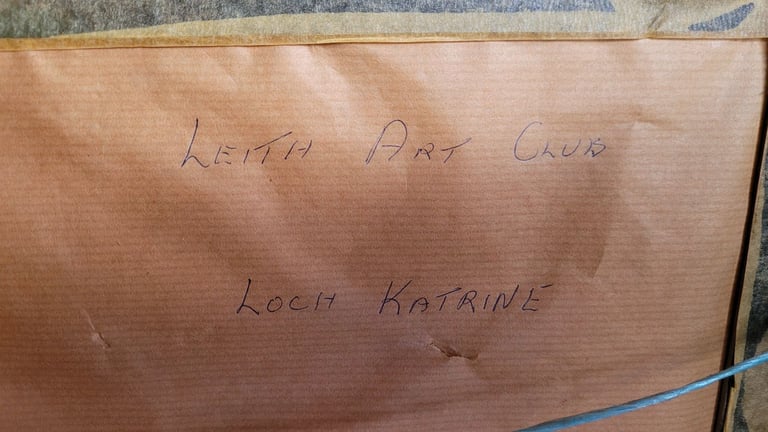 LEITH ART CLUB
LOCH KATRINE